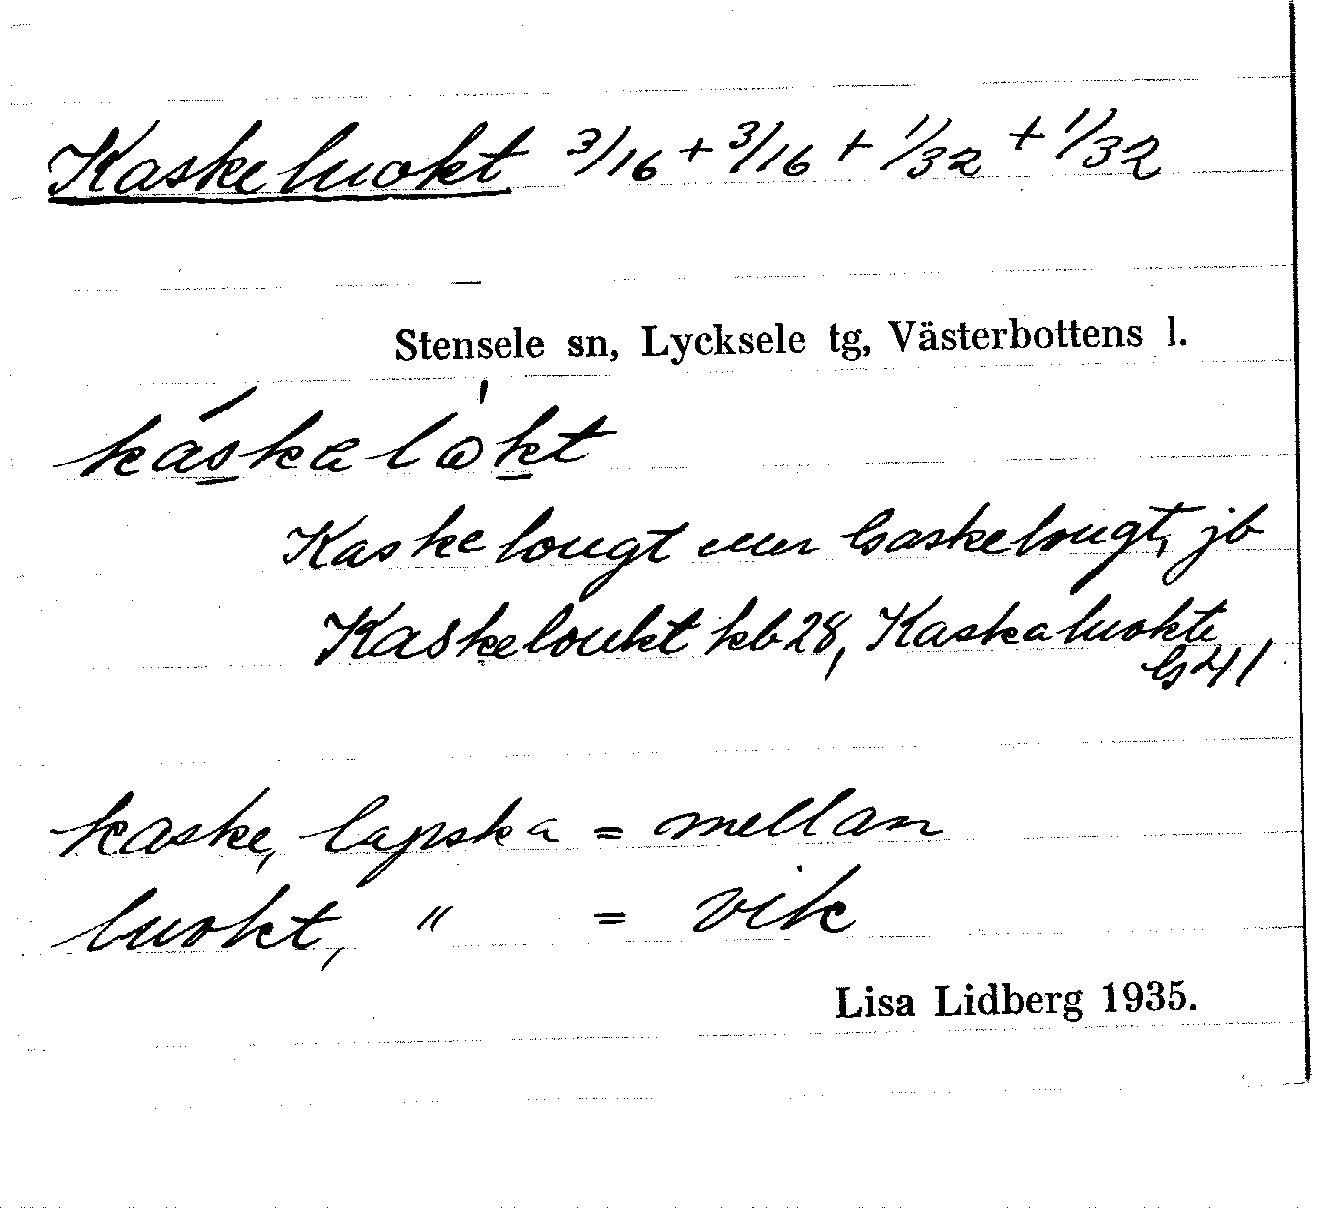 Kaskeluokt 3/16 + 3/16 + 1/32 + 1/32
Stensele sn, Lycksele tg, Västerbottens l.
káskalòkt
Kaskelougt eller Gaskelougt, jb
Kaskeloukt kb 28, Kaskaluokte
GS 41
kaske, lapska = mellan
luokt, " = vik
Lisa Lidberg 1935.